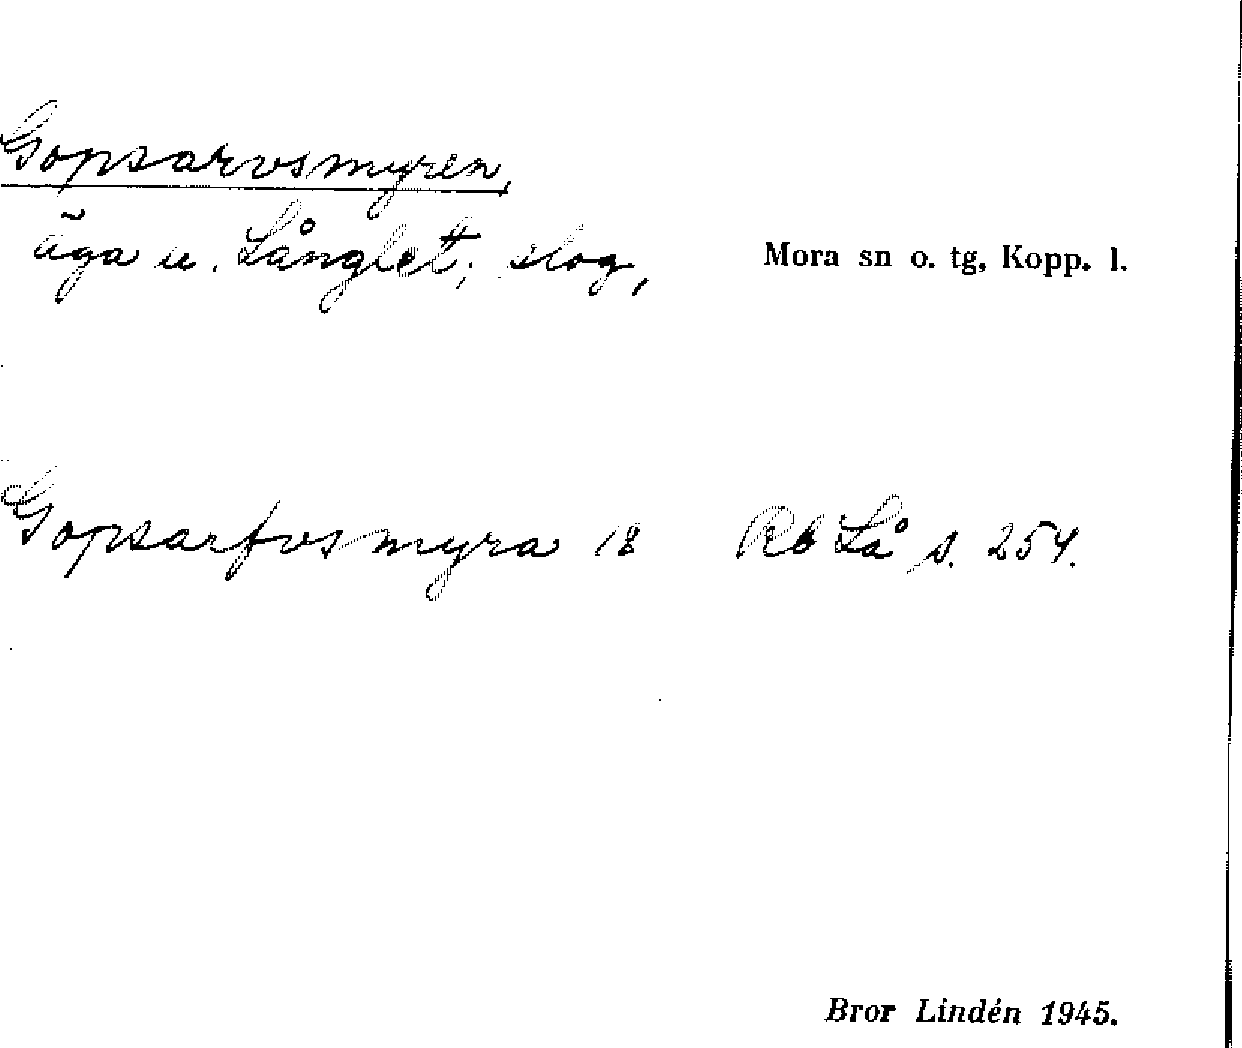 Gopsarvsmyren,
äga u. Långlet; slog, Mora sn o. tg, Kopp. l.
Gopsarfvsmyra 18 Rb Lå s. 254.
Bror Lindén 1945.